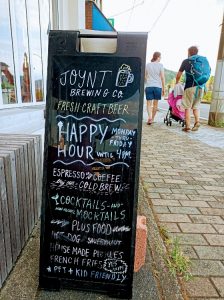 JOYNT
BREWING Co.
FRESH CRAFT BEER
HAPPY
HOUR
MONDAY
FRIDAY
UNTIL 4PM
ESPRESSO COFFEE
COLD BREW
COCKTAILS AND
MOCKTAILS
PLUS FOOD
HOT-DOG SAUERKRAUT
HOUSE MADE PICKLES
FRENCH FRIES
PET + KID FRIENDLY